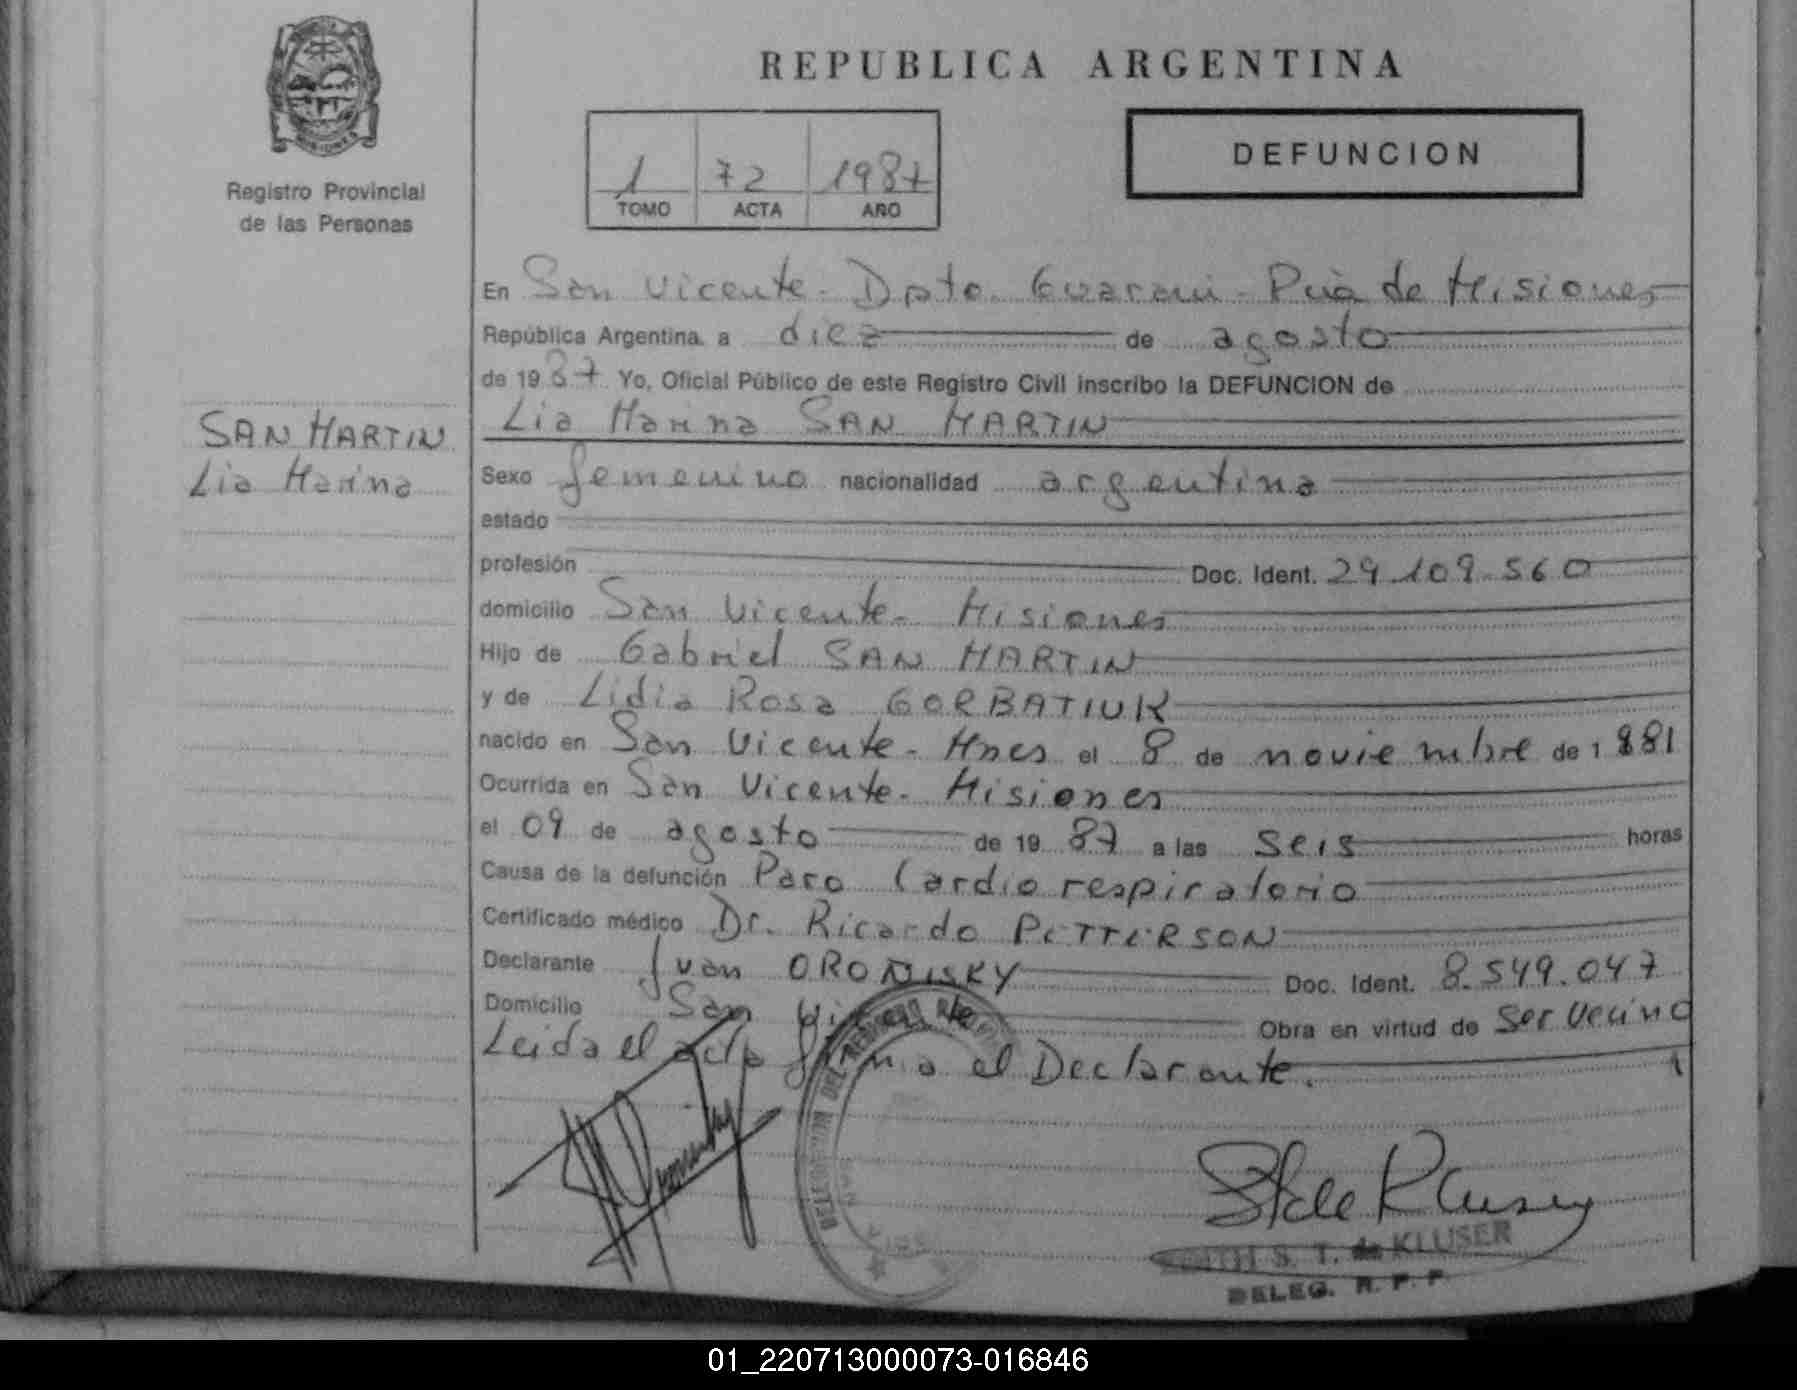 REPUBLICA ARGENTINA
MISIONES
Registro Provincial
de las Personas
1 72 1987
TOMO ACTA AÑO
DEFUNCION
En San Vicente - Dpto. Guarani - Pcia de Misiones
República Argentina, a diez de agosto
de 1987 Yo, Oficial Público de este Registro Civil inscribo la DEFUNCION de
Lia Marina SAN MARTIN
SAN MARTIN
Lia Marina
Sexo femenino nacionalidad argentina
estado
profesión Doc. Ident. 29.109.560
domicilio San Vicente - Misiones
Hijo de Gabriel SAN MARTIN
y de Lidia Rosa GORBATIUK
nacido en San Vicente - Mnes el 8 de noviembre de 1881
Ocurrida en San Vicente - Misiones
el 09 de agosto de 1987 a las seis horas
Causa de la defunción Paro Cardiorespiratorio
Certificado médico Dr. Ricardo PETTERSON
Declarante Juan ORONISKY Doc. Ident. 8.549.047
Domicilio San Vicente Obra en virtud de ser vecino
Leida el acta firma el Declarante.
S. T. de KLUSER
DELEG. R. P. P.
01_220713000073-016846